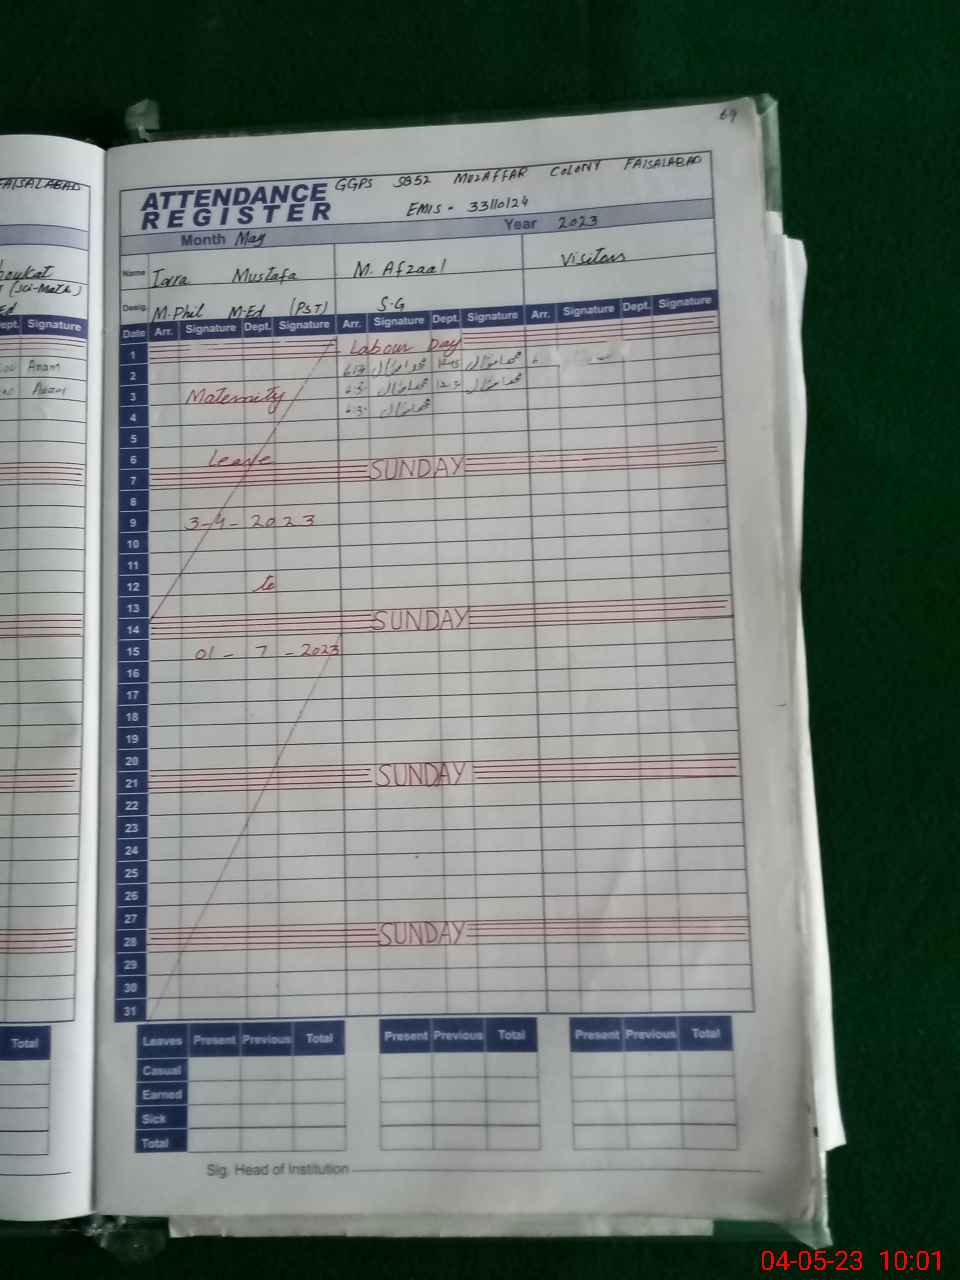 69
FAISALABAD
ATTENDANCE REGISTER
GGPS SB52 MUZAFFAR COLONY FAISALABAD
EMIS - 33110124
Month May Year 2023
Name Mustafa M. Afzaal Visitors
Desig. M.Phil M.Ed (PST) S.G
Dept. Signature
Date Arr. Signature Dept. Signature Arr. Signature Dept. Signature Arr. Signature Dept. Signature
1 Labour Day
Anam
2
3 Maternity
4
5
6 Leave
7 SUNDAY
8
9 3-4-2023
10
11
12 to
13
14 SUNDAY
15 01 - 7 - 2023
16
17
18
19
20
21 SUNDAY
22
23
24
25
26
27
28 SUNDAY
29
30
31
Total
Leaves Present Previous Total Present Previous Total Present Previous Total
Casual
Earned
Sick
Total
Sig. Head of Institution
04-05-23 10:01